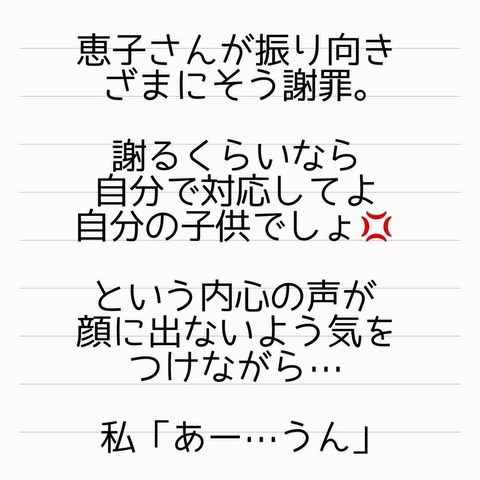 恵子さんが振り向き
ざまにそう謝罪。
謝るくらいなら
自分で対応してよ
自分の子供でしょ💢
という内心の声が
顔に出ないよう気を
つけながら…
私「あー…うん」